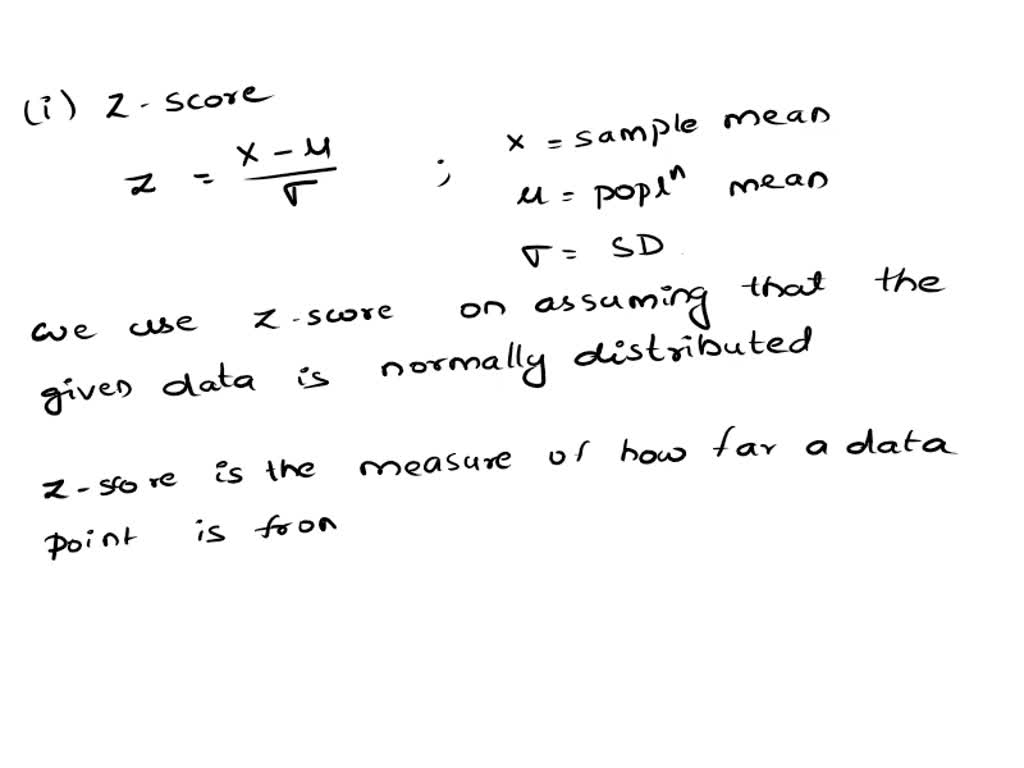 (i) Z - score
z = x - μ / σ ; x = sample mean
μ = popl^n mean
σ = SD
we use z-score on assuming that the
given data is normally distributed
z-score is the measure of how far a data
point is fron